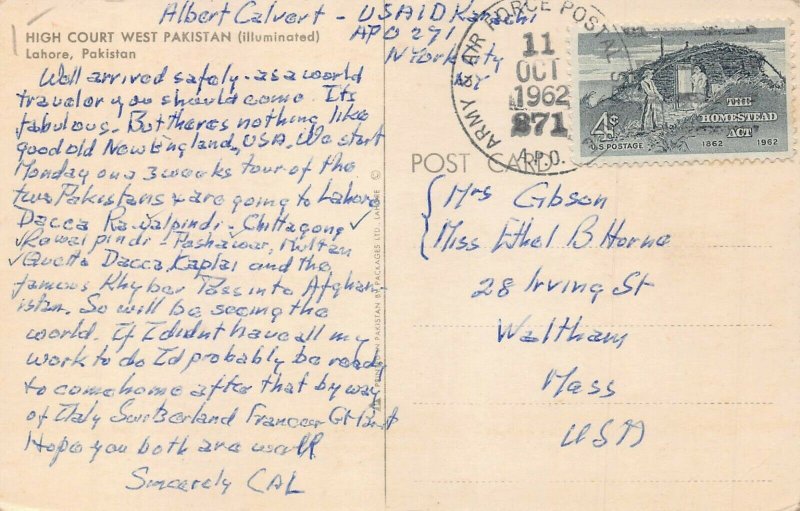 Albert Calvert - USAID Karachi
APO 271
NYork City
NY
HIGH COURT WEST PAKISTAN (illuminated)
Lahore, Pakistan
Well arrived safely - as a world
travelor you should come. Its
fabulous. But theres nothing like
good old New England, USA. We start
Monday on a 3 weeks tour of the
two Pakistans & are going to Lahore
Dacca Rawalpindi - Chittagong
Rawalpindi - Peshawar, Multan
Quetta Dacca, Kaptai and the
famous Khyber Pass into Afghan-
istan. So will be seeing the
world. If I didnt have all my
work to do Id probably be ready
to come home after that by way
of Italy Switzerland France & Gt Brit
Hope you both are well
Sincerely CAL
PRINTED IN PAKISTAN BY PACKAGES LTD. LAHORE ©
ARMY & AIR FORCE POSTAL
11
OCT
1962
271
A.P.O.
4¢
U.S. POSTAGE
THE
HOMESTEAD
ACT
1862 1962
POST CARD
Mrs Gibson
Miss Ethel B. Horne
28 Irving St
Waltham
Mass
USA